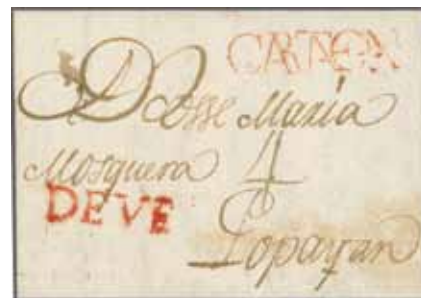 CARTGNA
D Josse Maria
Mosquera 4
DEVE
Popayan